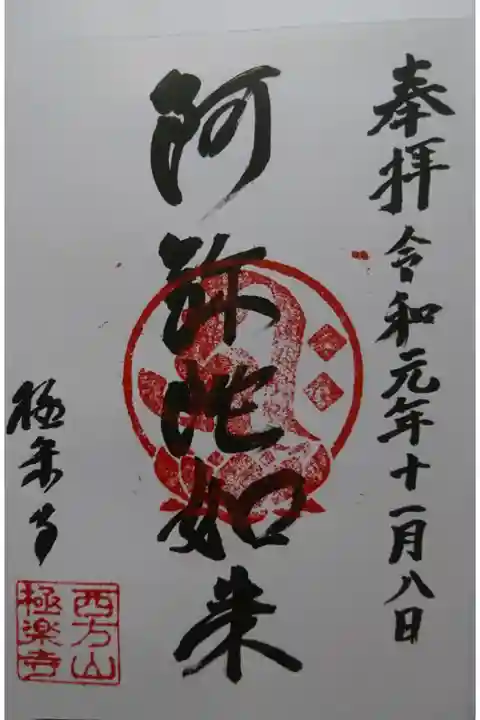 奉拝 令和元年十一月八日
阿弥陀如来
極楽寺
西方山
極楽寺